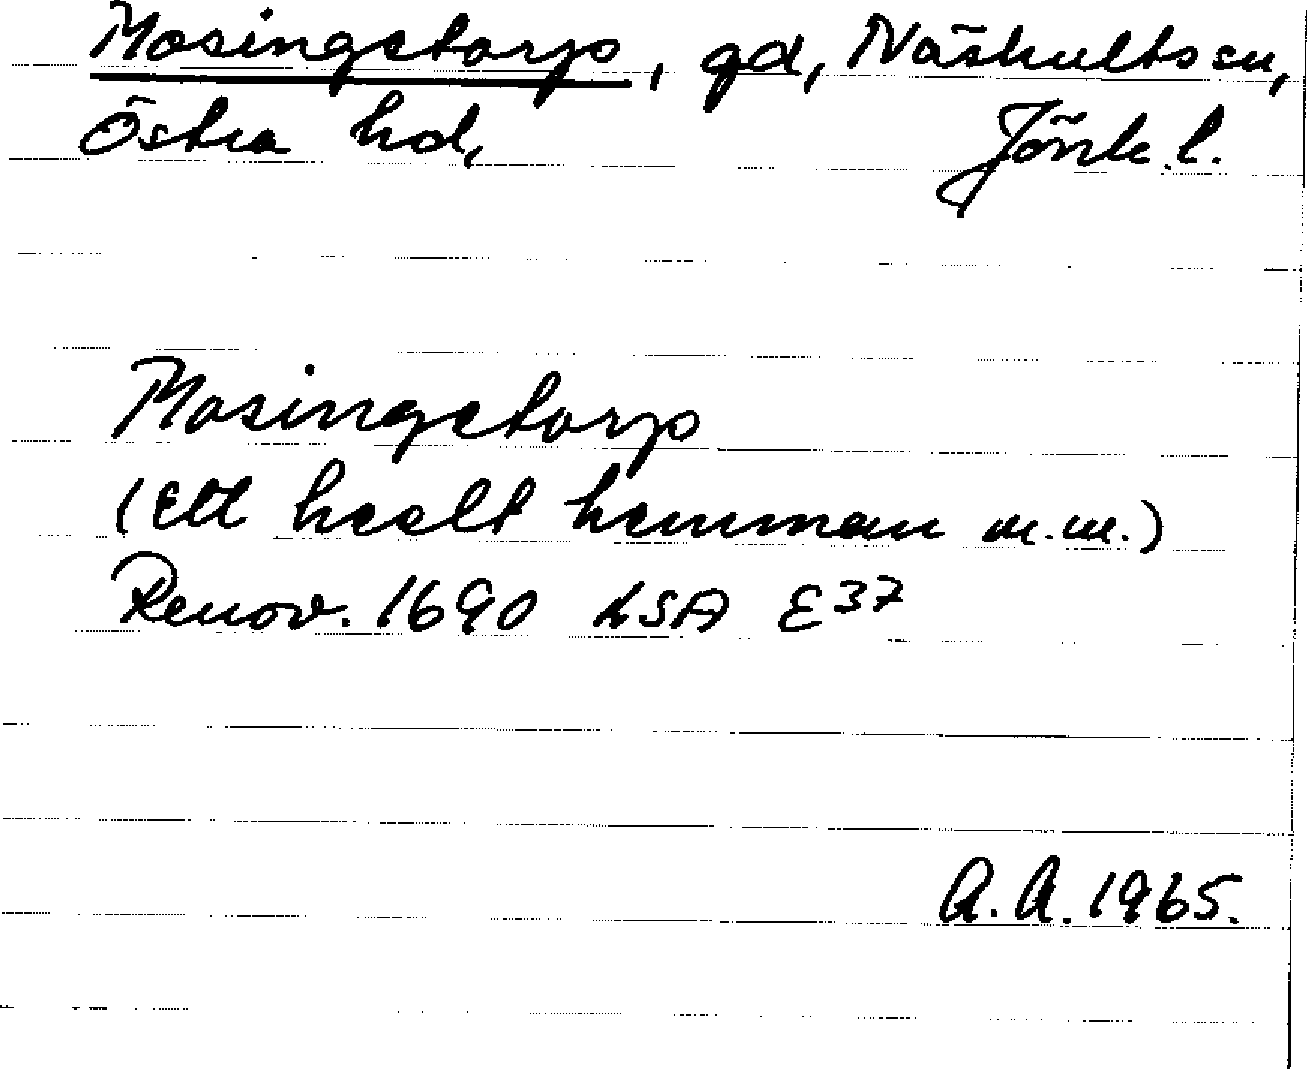 Mosingetorp, gd, Näshults sn,
Östra hd, Jönk. l.
Mosingetorp
(Ett heelt hemman m.m.)
Renov. 1690 LSA E37
A.A. 1965.